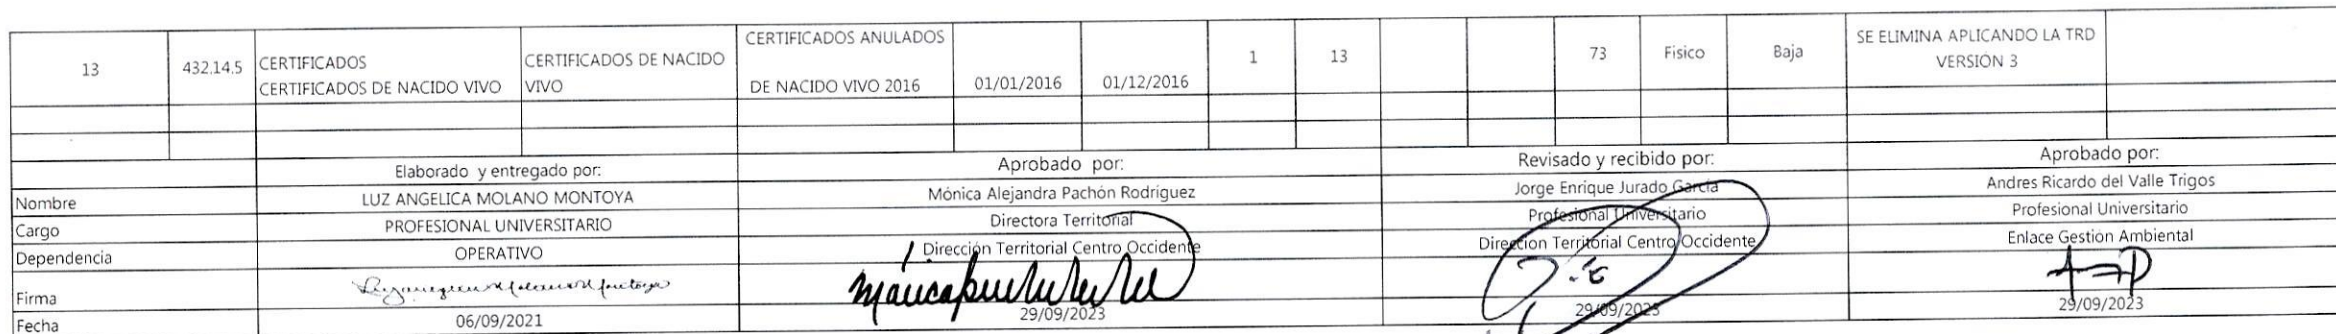 13 432.14.5 CERTIFICADOS CERTIFICADOS DE NACIDO VIVO CERTIFICADOS DE NACIDO VIVO CERTIFICADOS ANULADOS DE NACIDO VIVO 2016 01/01/2016 01/12/2016 1 13 73 Fisico Baja SE ELIMINA APLICANDO LA TRD VERSIÓN 3
Elaborado y entregado por: Aprobado por: Revisado y recibido por: Aprobado por:
Nombre LUZ ANGELICA MOLANO MONTOYA Mónica Alejandra Pachón Rodríguez Jorge Enrique Jurado García Andres Ricardo del Valle Trigos
Cargo PROFESIONAL UNIVERSITARIO Directora Territorial Profesional Universitario Profesional Universitario
Dependencia OPERATIVO Dirección Territorial Centro Occidente Direccion Territorial Centro Occidente Enlace Gestión Ambiental
Firma
Fecha 06/09/2021 29/09/2023 29/09/2023 29/09/2023